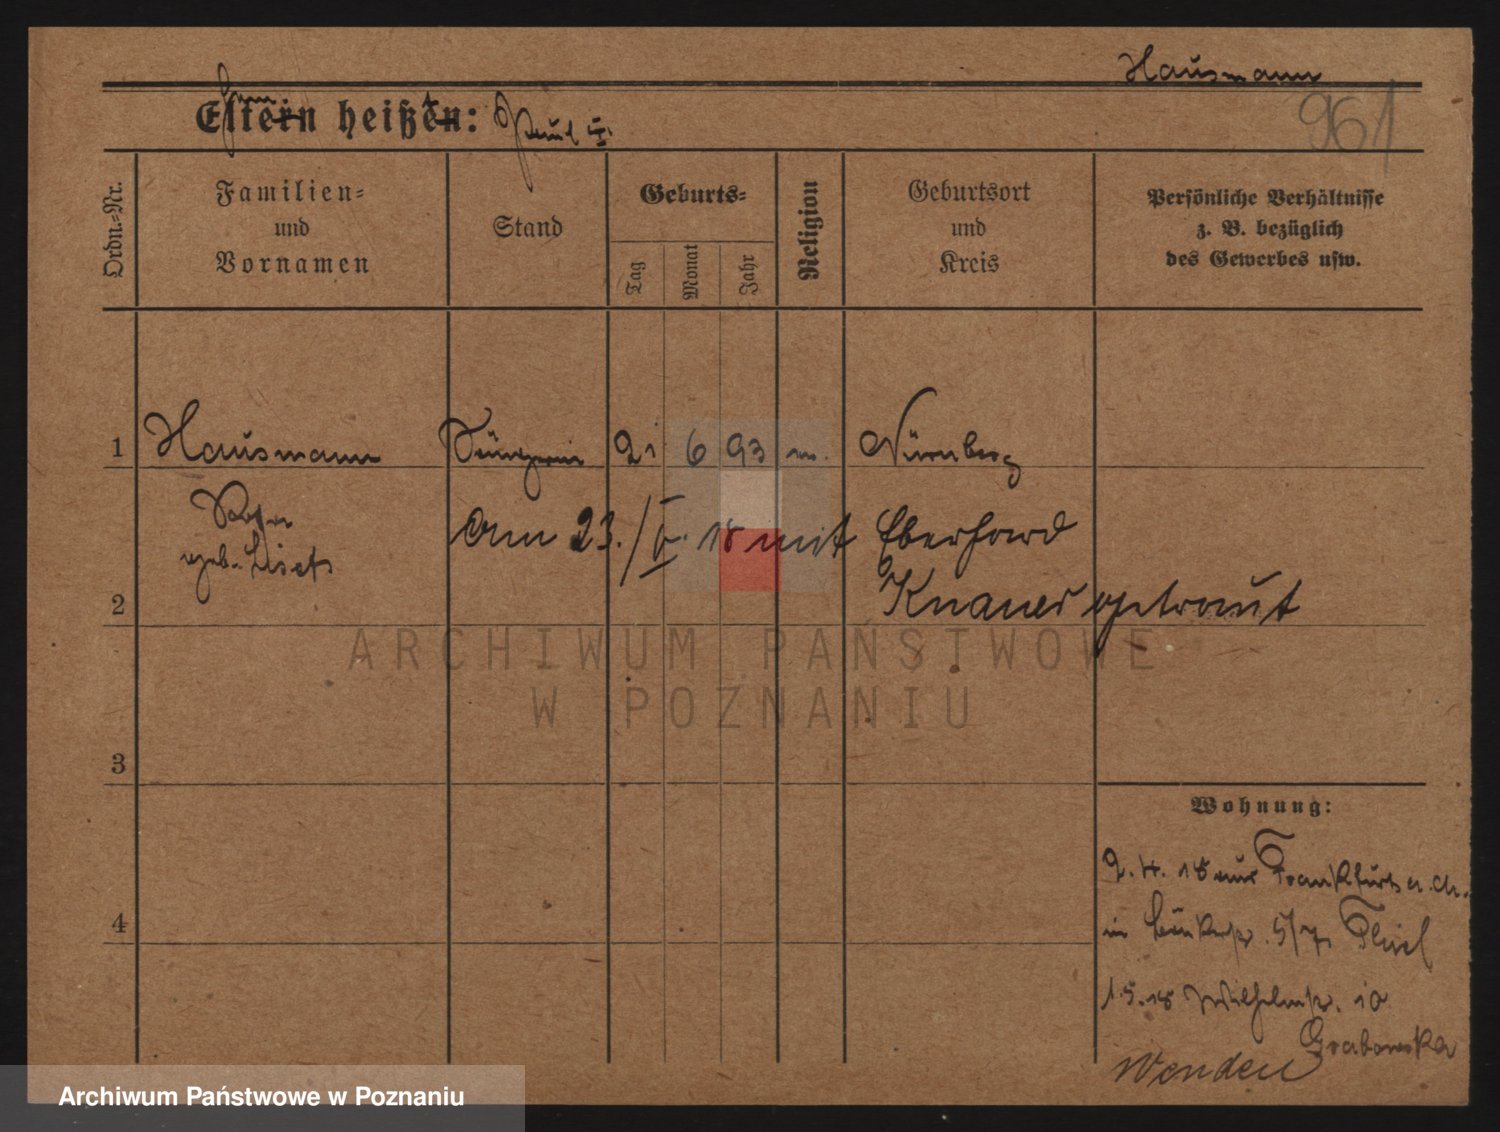 Hausmann
961
Eltern heißen: Paul
Ordn.=Nr.
Familien=
und
Vornamen
Stand
Geburts=
Tag
Monat
Jahr
Religion
Geburtsort
und
Kreis
Persönliche Verhältnisse
z. B. bezüglich
des Gewerbes usw.
1 Hausmann Sängerin 21 6 93 Nürnberg
geb.
am 23./V. 18 mit Eberhard
2 Knauer getraut
3
4
Wohnung:
2. 4. 18 aus Frankfurt a. M.
in 5/7
1.5.18 Wilhelmstr. 10
Grabowska
Wenden
ARCHIWUM PAŃSTWOWE
W POZNANIU
Archiwum Państwowe w Poznaniu